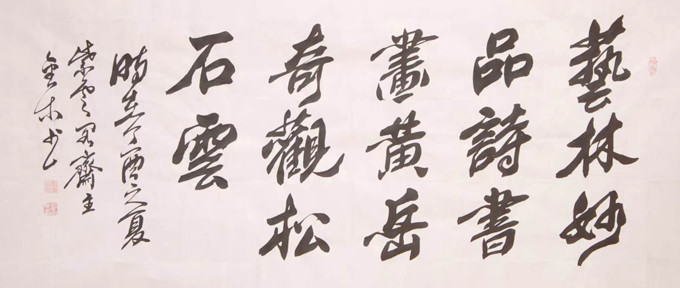 藝林妙
品詩書
畫黃岳
奇觀松
石雲
時在丁酉之夏
紫雲閣齋主
金木書